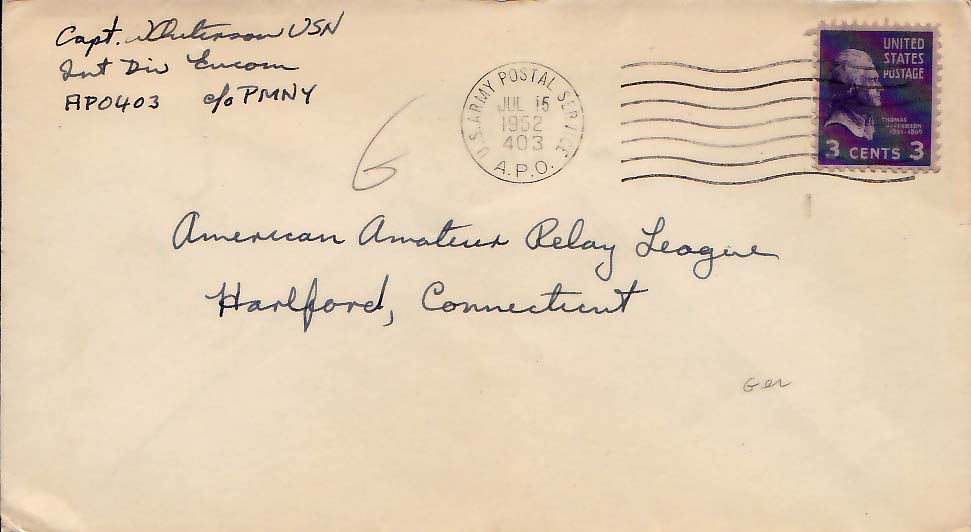 Capt. USN
Int Div Eucom
APO403 c/o PMNY
U.S. ARMY POSTAL SERVICE
JUL 15
1952
403
A.P.O.
UNITED
STATES
POSTAGE
THOMAS
JEFFERSON
1801-1809
3 CENTS 3
6
American Amateur Relay League
Hartford, Connecticut
Ger